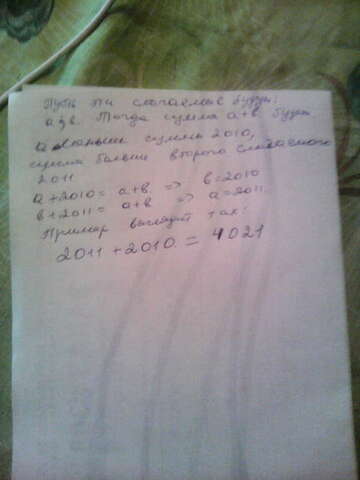 Пусть эти слагаемые будут:
а и в. Тогда сумма а+в. будет
а меньше суммы 2010,
сумма больше второго слагаемого
2011
а+2010= а+в. => в=2010
в+2011= а+в => а=2011.
Пример выглядит так:
2011+2010.=4021